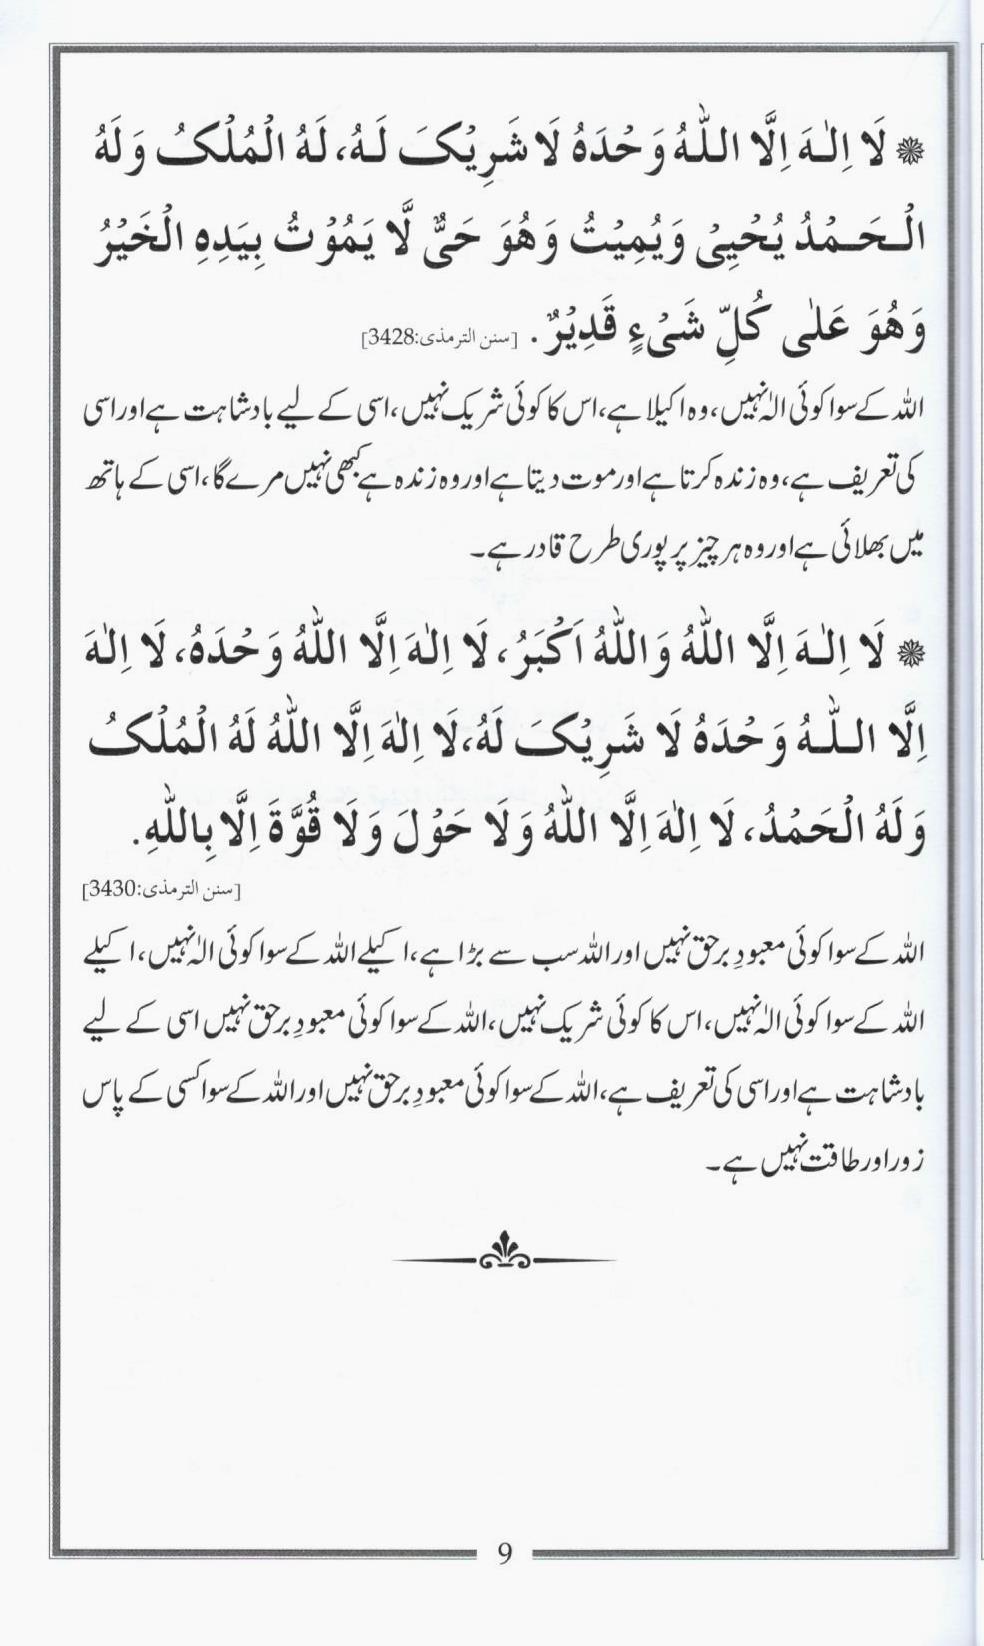 ❁ لَا اِلٰـہَ اِلَّا اللّٰہُ وَحْدَہُ لَا شَرِیْکَ لَـہُ، لَہُ الْمُلْکُ وَلَہُ
الْـحَـمْدُ یُحْیِیْ وَیُمِیْتُ وَھُوَ حَیٌّ لَّا یَمُوْتُ بِیَدِہِ الْخَیْرُ
وَھُوَ عَلٰی کُلِّ شَیْءٍ قَدِیْرٌ. [سنن الترمذی:3428]
اللہ کے سوا کوئی الٰہ نہیں، وہ اکیلا ہے، اس کا کوئی شریک نہیں، اسی کے لیے بادشاہت ہے اور اسی
کی تعریف ہے، وہ زندہ کرتا ہے اور موت دیتا ہے اور وہ زندہ ہے کبھی نہیں مرے گا، اسی کے ہاتھ
میں بھلائی ہے اور وہ ہر چیز پر پوری طرح قادر ہے۔
❁ لَا اِلٰـہَ اِلَّا اللّٰہُ وَاللّٰہُ اَکْبَرُ، لَا اِلٰہَ اِلَّا اللّٰہُ وَحْدَہُ، لَا اِلٰہَ
اِلَّا الـلّٰـہُ وَحْدَہُ لَا شَرِیْکَ لَہُ، لَا اِلٰہَ اِلَّا اللّٰہُ لَہُ الْمُلْکُ
وَلَہُ الْحَمْدُ، لَا اِلٰہَ اِلَّا اللّٰہُ وَلَا حَوْلَ وَلَا قُوَّۃَ اِلَّا بِاللّٰہِ.
[سنن الترمذی:3430]
اللہ کے سوا کوئی معبودِ برحق نہیں اور اللہ سب سے بڑا ہے، اکیلے اللہ کے سوا کوئی الٰہ نہیں، اکیلے
اللہ کے سوا کوئی الٰہ نہیں، اس کا کوئی شریک نہیں، اللہ کے سوا کوئی معبودِ برحق نہیں اسی کے لیے
بادشاہت ہے اور اسی کی تعریف ہے، اللہ کے سوا کوئی معبودِ برحق نہیں اور اللہ کے سوا کسی کے پاس
زور اور طاقت نہیں ہے۔
9